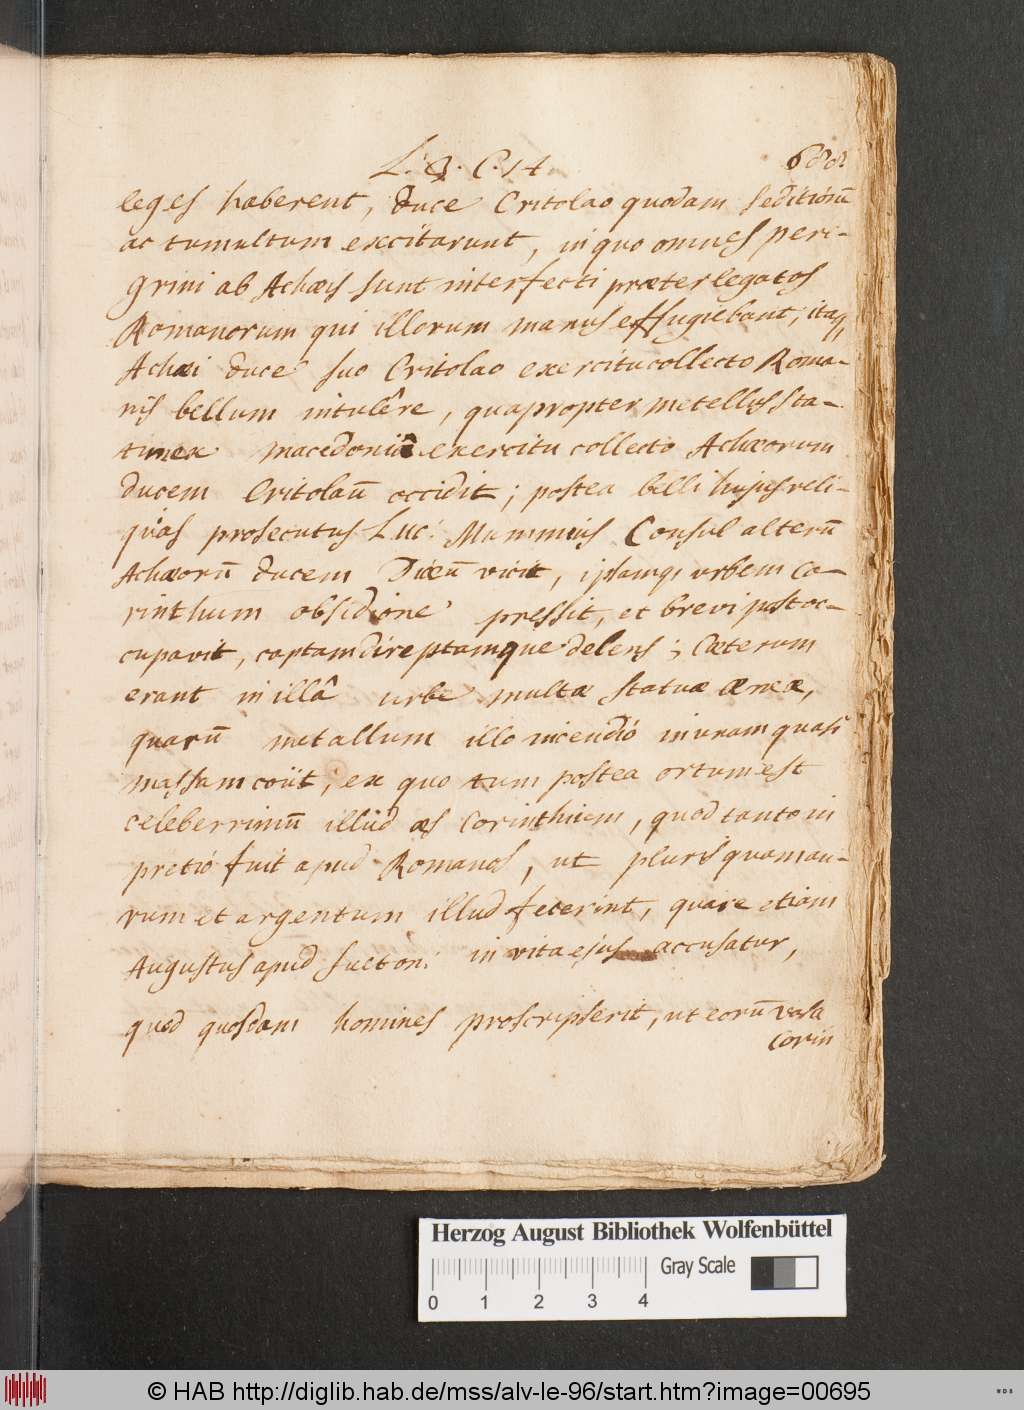 L. 2. C. 14.
688.
leges haberent, duce Critolao quodam seditionū
ac tumultum excitarunt, in quo omnes peri-
grini ab Achæis sunt interfecti præter legatos
Romanorum qui illorum manus effugiebant, itaq
Achæi duce suo Critolao exercitu collecto Roma-
nis bellum intulêre, quapropter metellus sta-
tim ex macedoniâ exercitu collecto Achæorum
ducem Critolaū occidit; postea belli hujus reli-
quias prosecutus Luc: Mummius Consul alterū
Achæorū ducem Diæū vicit, ipsamq. urbem Co-
rinthum obsidione pressit, et brevi post oc-
cupavit, captam direptamque delens; Cæterum
erant in illâ urbe multæ statuæ æneæ,
quarū metallum illo incendió in unam quasi
massam coiit, ex quo tum postea ortum est
celeberrimū illud æs Corinthium, quod tanto in
pretió fuit apud Romanos, ut pluris quam au-
rum et argentum illud fecerint, quare etiam
Augustus apud sueton: in vita ejus accusatur,
quod quosdam homines proscripserit, ut eorū vasa
Corin
Herzog August Bibliothek Wolfenbüttel
Gray Scale
0 1 2 3 4
© HAB http://diglib.hab.de/mss/alv-le-96/start.htm?image=00695